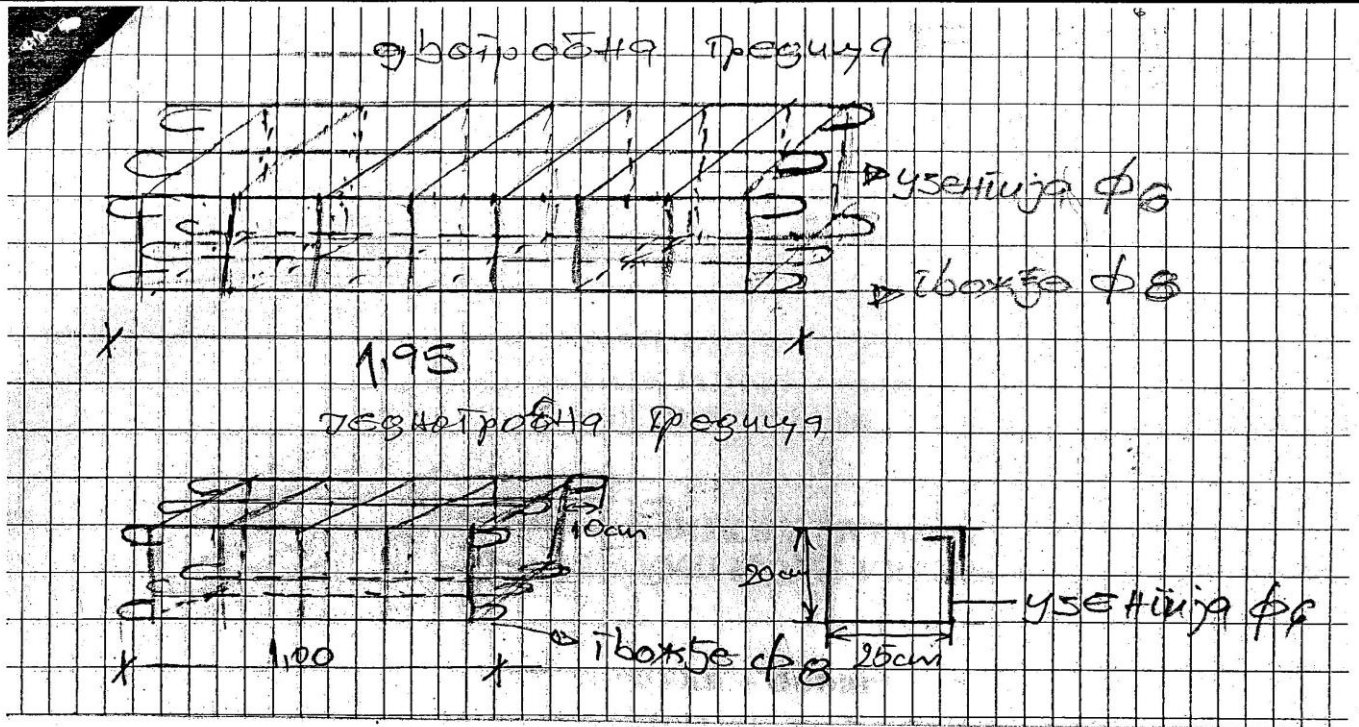 двогробна гредица
узенгија ф6
гвожђе ф8
1,95
једногробна гредица
10cm
20cm
узенгија ф6
гвожђе ф8
25cm
1,00